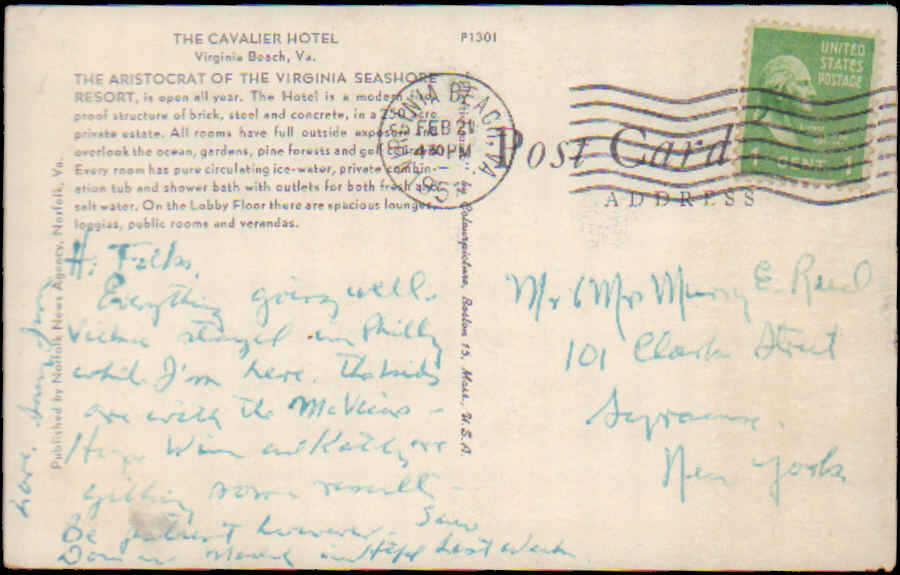 THE CAVALIER HOTEL
Virginia Beach, Va.
THE ARISTOCRAT OF THE VIRGINIA SEASHORE
RESORT, is open all year. The Hotel is a modern
proof structure of brick, steel and concrete, in a 250
private estate. All rooms have full outside
overlook the ocean, gardens, pine forests and golf
Every room has pure circulating ice-water, private combin-
ation tub and shower bath with outlets for both fresh and
salt water. On the Lobby Floor there are spacious lounges,
loggias, public rooms and verandas.
P1301
VIRGINIA BEACH, VA.
FEB 21
4 30 PM
UNITED
STATES
POSTAGE
1 CENT 1
Post Card
ADDRESS
Published by Norfolk News Agency, Norfolk, Va.
by Colourpicture, Boston 15, Mass., U.S.A.
Hi Folks,
Everything going well.
stayed in Philly
while I'm here. The kids
are with the
Hope and Kathy are
getting some results
Be patient however. Saw
last week
Love,
Mr & Mrs Murray E. Reed
101 Clark Street
Syracuse
New York